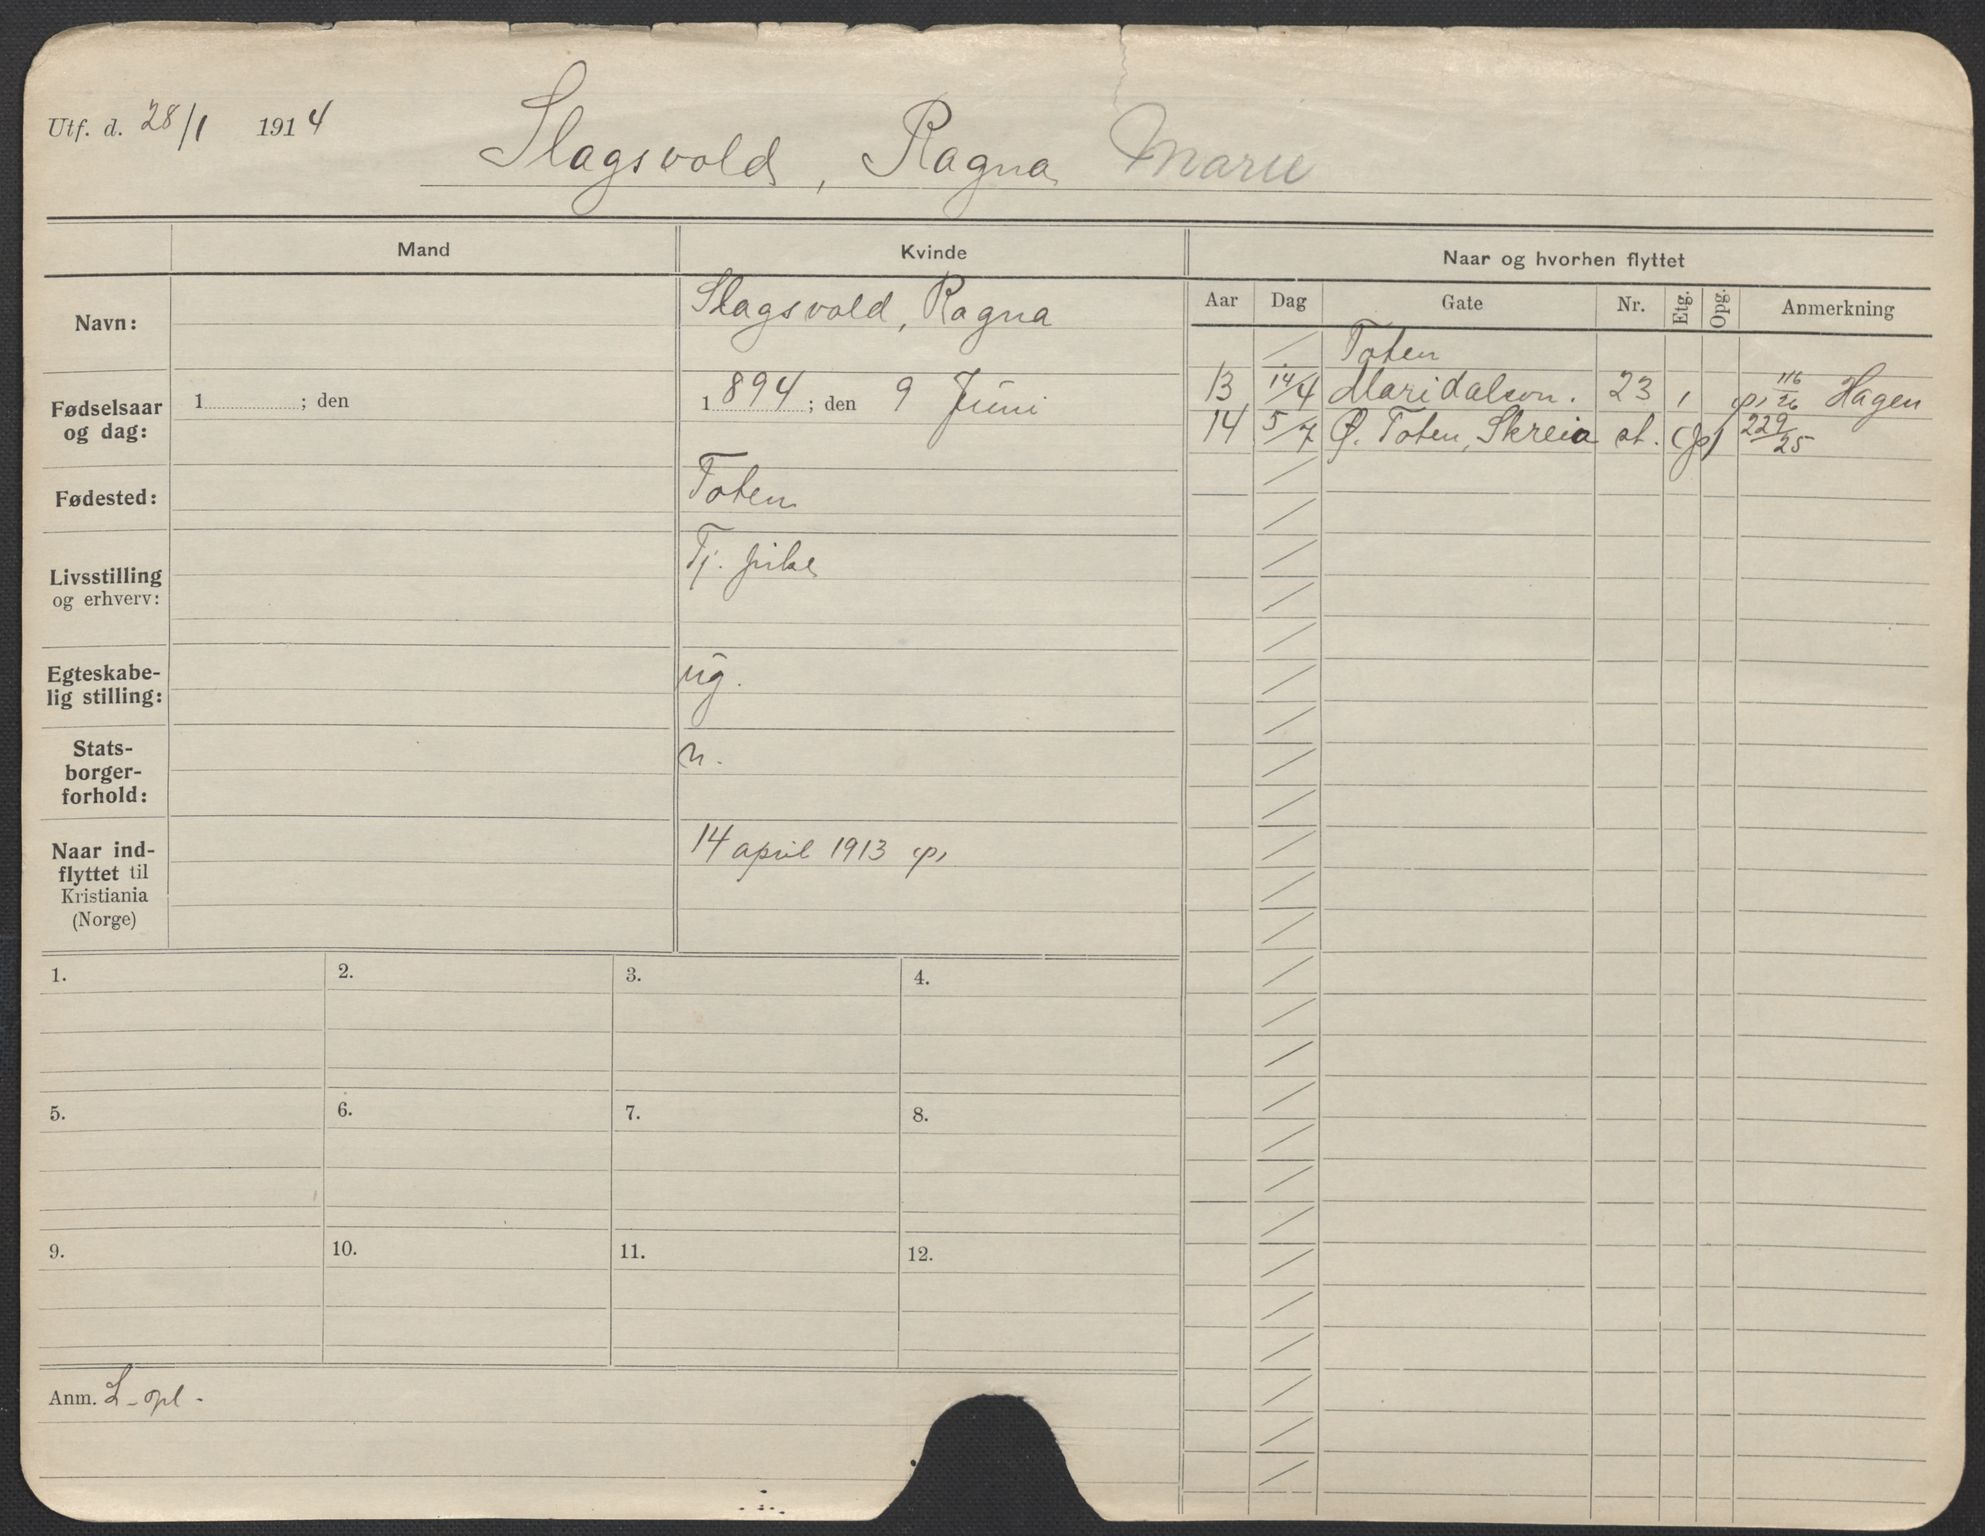 Utf. d. 28/1 1914
Slagsvold, Ragna Marie
Mand
Kvinde
Navn:
Slagsvold, Ragna
Fødselsaar og dag:
1 ; den
1894; den 9 Juni
Fødested:
Toten
Livsstilling og erhverv:
Tj. pike
Egteskabe-
lig stilling:
ug.
Stats-
borger-
forhold:
n.
Naar ind-
flyttet til
Kristiania
(Norge)
14 april 1913
1. 2. 3. 4.
5. 6. 7. 8.
9. 10. 11. 12.
Anm. L-opl-
Naar og hvorhen flyttet
Aar Dag Gate Nr. Etg. Opg. Anmerkning
/ Toten
13 14/4 Maridalsvn. 23 1 116/26 Hagen
14 5/7 Ø. Toten, Skreia st. (p) 229/25